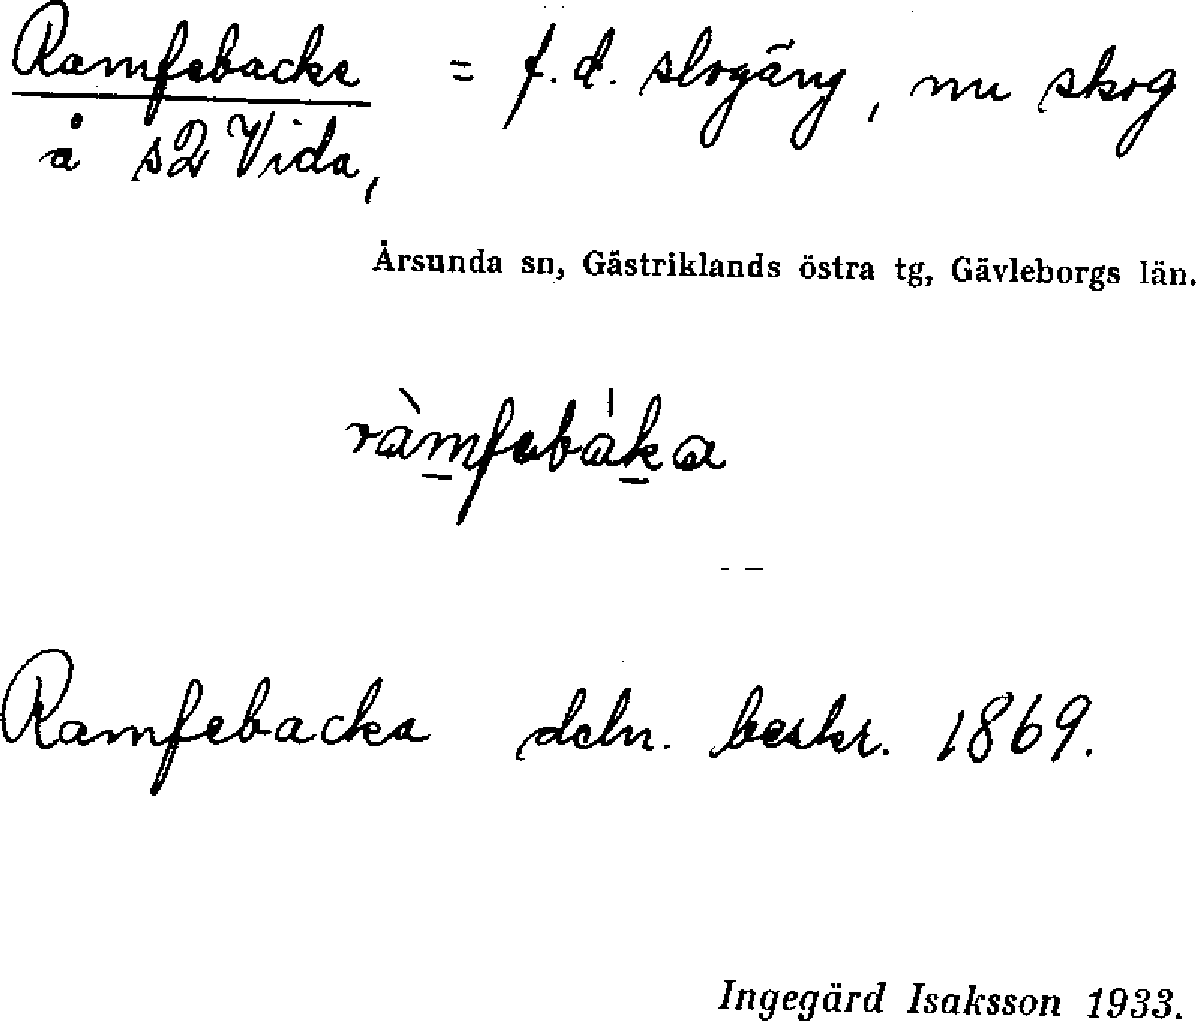 Ramfebacke = f. d. slogäng, nu skog
å s2 Vida,
Årsunda sn, Gästriklands östra tg, Gävleborgs län.
ràmfebáka
Ramfebacka deln. beskr. 1869.
Ingegärd Isaksson 1933.